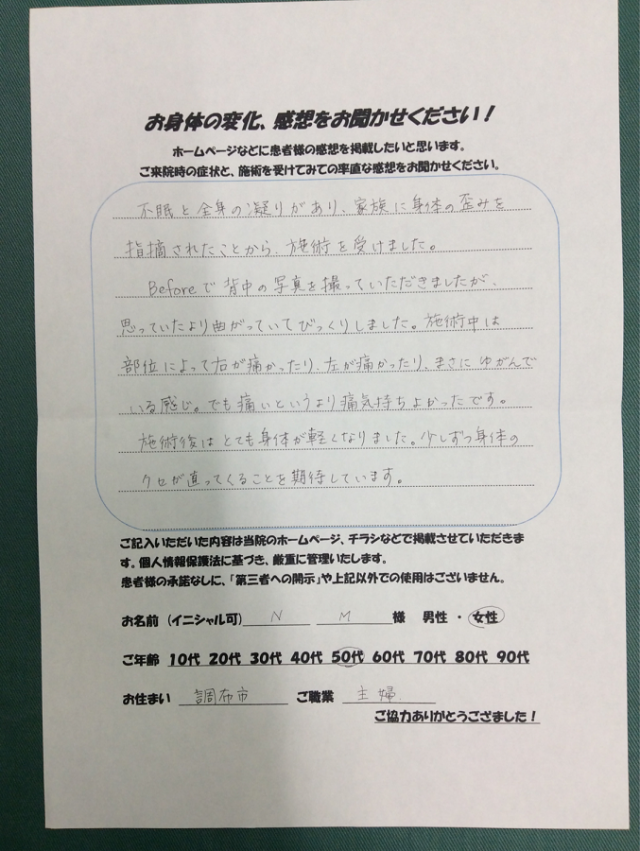 お身体の変化、感想をお聞かせください！
ホームページなどに患者様の感想を掲載したいと思います。
ご来院時の症状と、施術を受けてみての率直な感想をお聞かせください。
不眠と全身の凝りがあり、家族に身体の歪みを
指摘されたことから、施術を受けました。
Beforeで背中の写真を撮っていただきましたが、
思っていたより曲がっていてびっくりしました。施術中は
部位によって右が痛かったり、左が痛かったり、まさにゆがんで
いる感じ。でも痛いというより痛気持ちよかったです。
施術後はとても身体が軽くなりました。少しずつ身体の
クセが直ってくることを期待しています。
ご記入いただいた内容は当院のホームページ、チラシなどで掲載させていただきま
す。個人情報保護法に基づき、厳重に管理いたします。
患者様の承諾なしに、「第三者への開示」や上記以外での使用はございません。
お名前（イニシャル可） N M 様 男性 ・ 女性
ご年齢 10代 20代 30代 40代 50代 60代 70代 80代 90代
お住まい 調布市 ご職業 主婦
ご協力ありがとうござました！